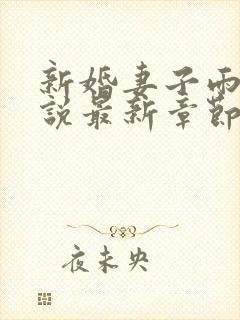 新婚妻子雨
說最新章節
夜未央